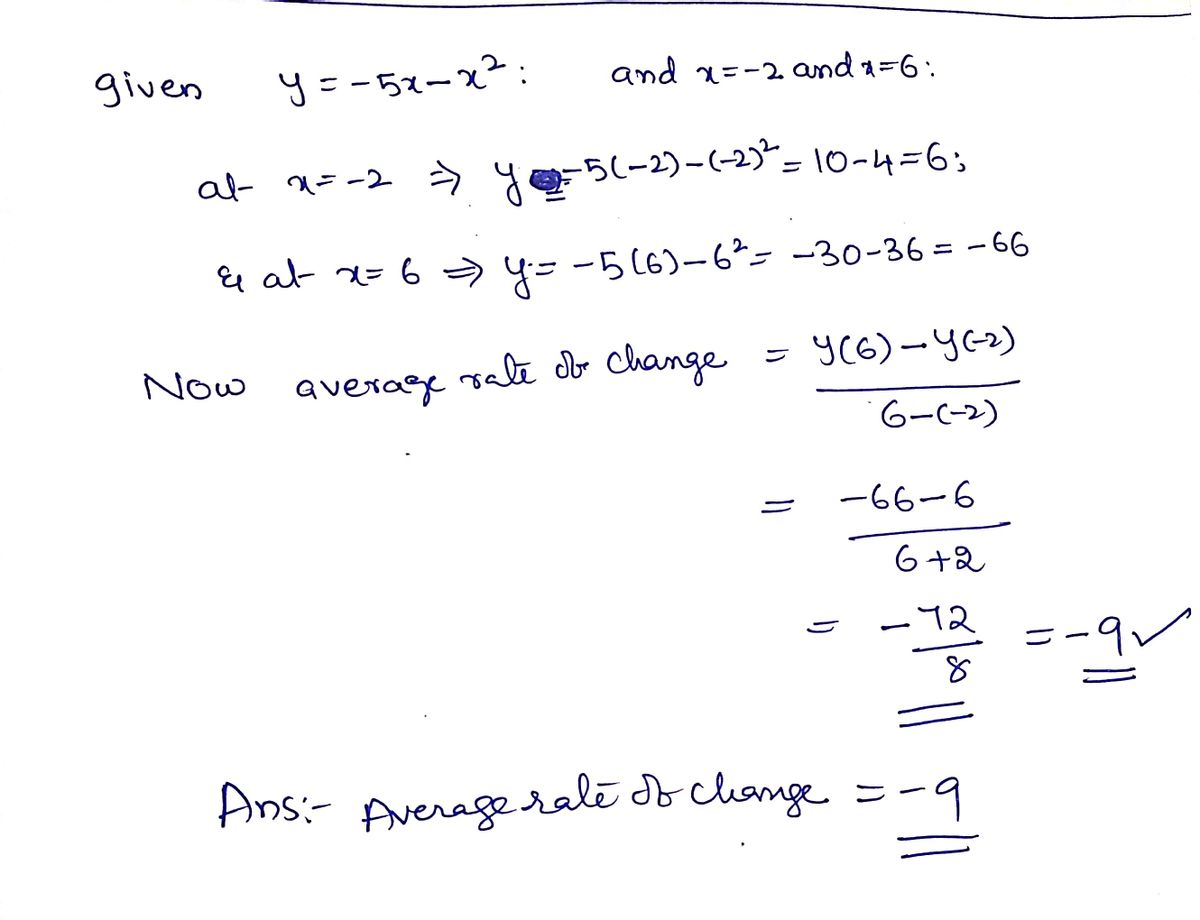 given y = -5x - x² : and x=-2 and x=6:
at x=-2 ⇒ y = -5(-2)-(-2)² = 10-4=6;
& at x=6 ⇒ y = -5(6)-6² = -30-36 = -66
Now average rate of change = y(6)-y(-2)
6-(-2)
= -66-6
6+2
= -72 = -9 ✓
8
Ans:- Average rate of change = -9